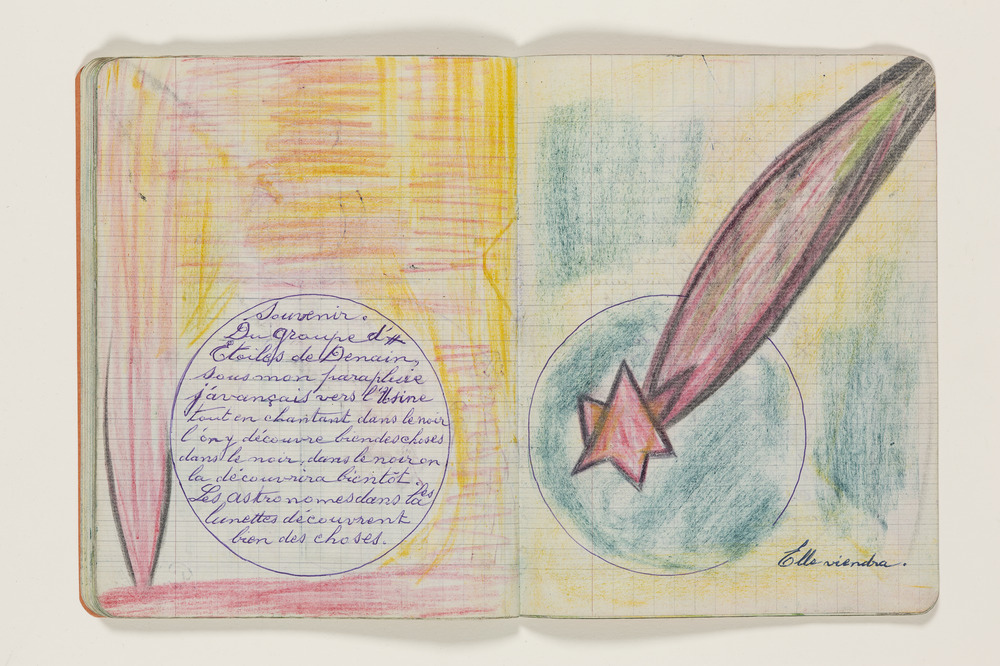 Souvenir.
Du groupe d'
Etoiles de Denain,
sous mon parapluie
j'avançais vers l'Usine
tout en chantant dans le noir
l'on y découvre bien des choses
dans le noir, dans le noir on
la découvrira bientôt.
Les astronomes dans la les
lunettes découvrent
bien des choses.
Elle viendra.